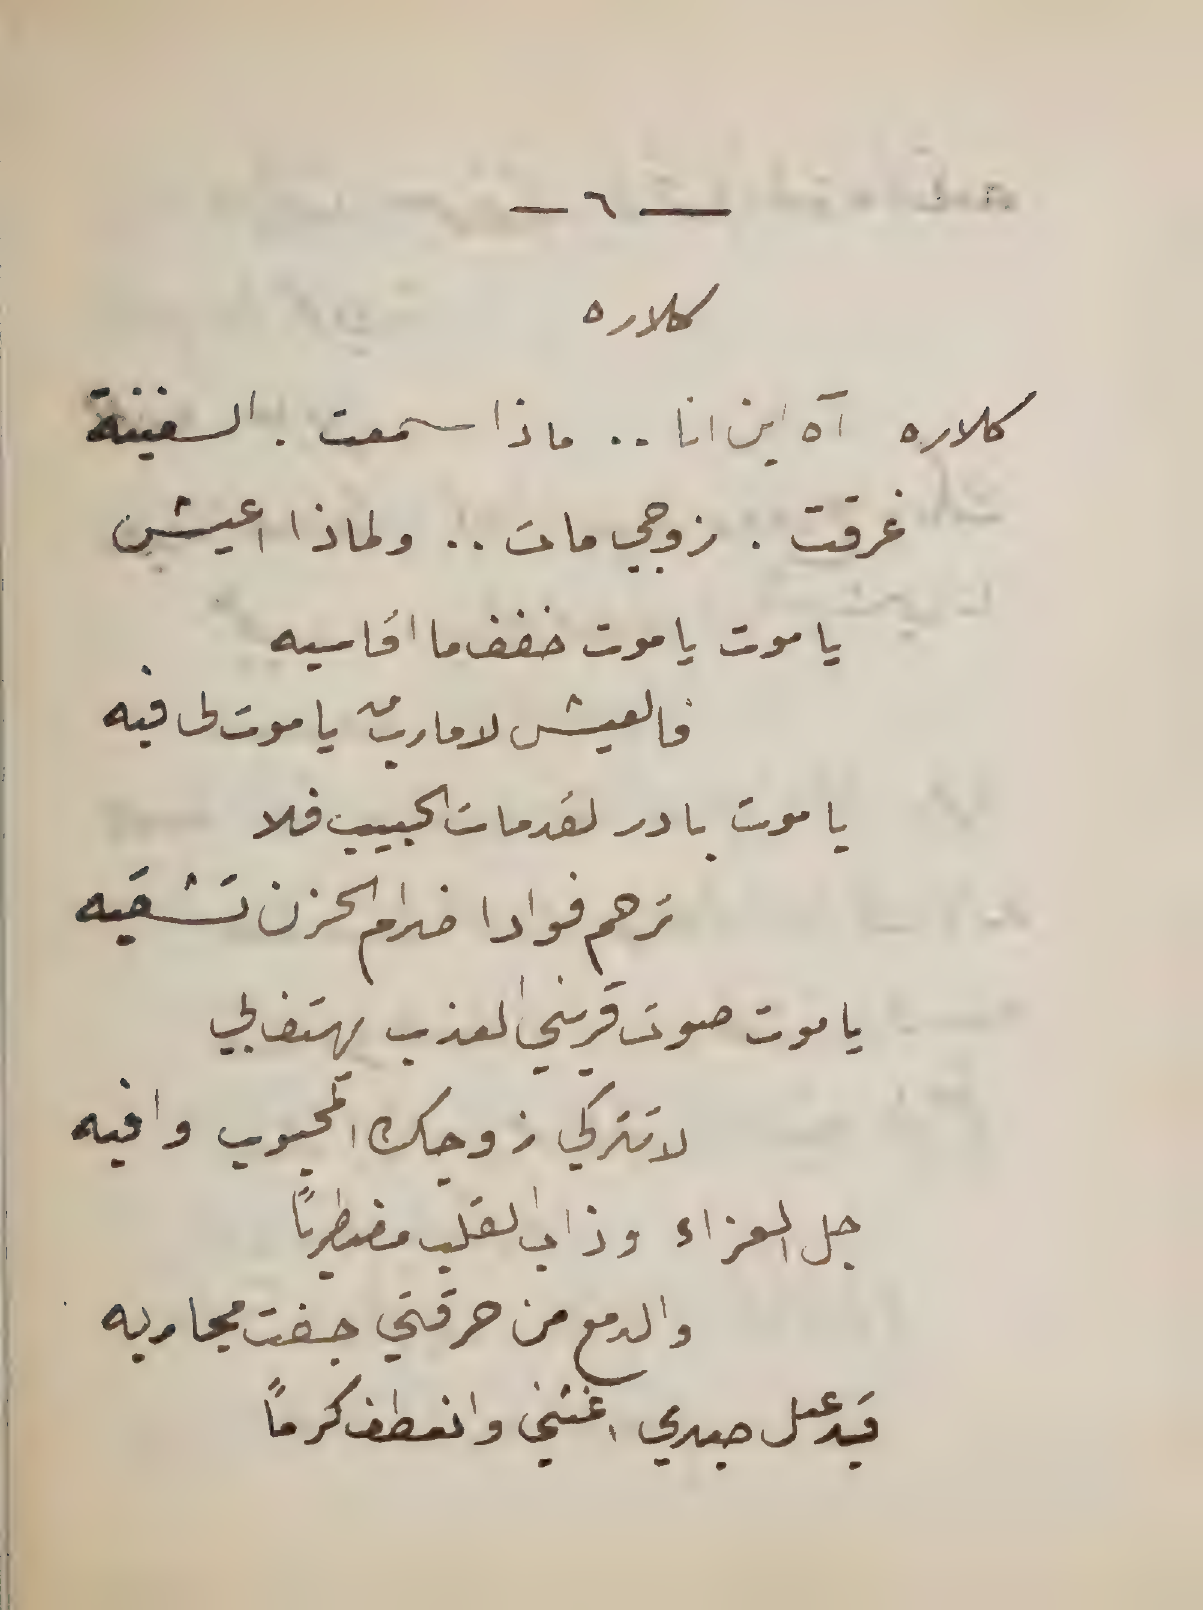 — ٦ —
كلاره
كلاره آه اين انا .. ماذا سمعت . السفينة
غرقت . زوجي مات .. ولماذا اعيش
يا موت يا موت خفف ما اقاسيه
فالعيش لا مارب يا موت لي فيه
يا موت بادر لقد مات الحبيب فلا
ترحم فوادا ضرام الحزن تشقيه
يا موت صوت قريني العذب يهتف بي
لا تتركي زوجك المحبوب وافيه
جل العزاء وذاب القلب مضطربًا
والدمع من حرقتي جفت مجاريه
قد عيل صبري اغثني وانعطف كرمًا